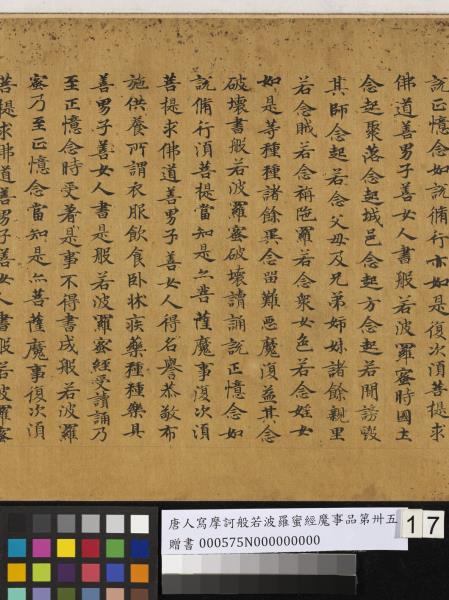 說正憶念如說脩行亦如是復次湏菩提求
佛道善男子善女人書般若波羅蜜時國土
念起聚落念起城邑念起方念起若聞謗毀
其師念起若念父母及兄弟姉妹諸餘親里
若念賊若念旃陁羅若念衆女色若念婬女
如是等種種諸餘異念留難惡魔復益其念
破壞書般若波羅蜜破壞讀誦說正憶念如
說脩行湏菩提當知是亦菩薩魔事復次湏
菩提求佛道善男子善女人得名譽恭敬布
施供養所謂衣服飲食卧牀疾藥種種樂具
善男子善女人書是般若波羅蜜經受讀誦乃
至正憶念時受著是事不得書成般若波羅
蜜乃至正憶念當知是亦菩薩魔事復次湏
菩提求佛道善男子善女人書般若波羅蜜
唐人寫摩訶般若波羅蜜經魔事品第卅五
贈書 000575N000000000
17